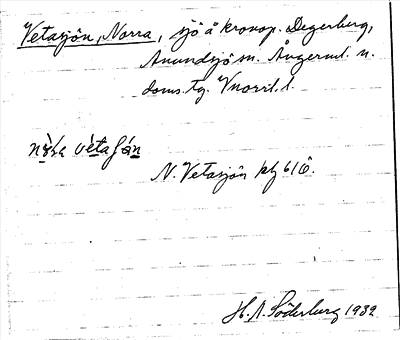 Vetasjön, Norra, sjö å kronop. Degerberg,
Anundsjö sn. Ångerml. n.
doms.tg. Vnorrl. l.
N. Vetasjön kbl 61Ö.
H. A. Söderberg 1932